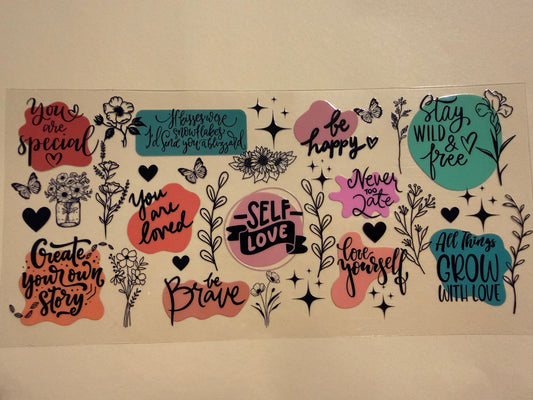 You
are
special
If kisses were
snowflakes
I'd send you a blizzard
be
happy
Stay
WILD &
free
You are
loved
-SELF-
LOVE
Never
TOO
Late
Create
your own
Story
be
Brave
love
yourself
All Things
GROW
WITH LOVE